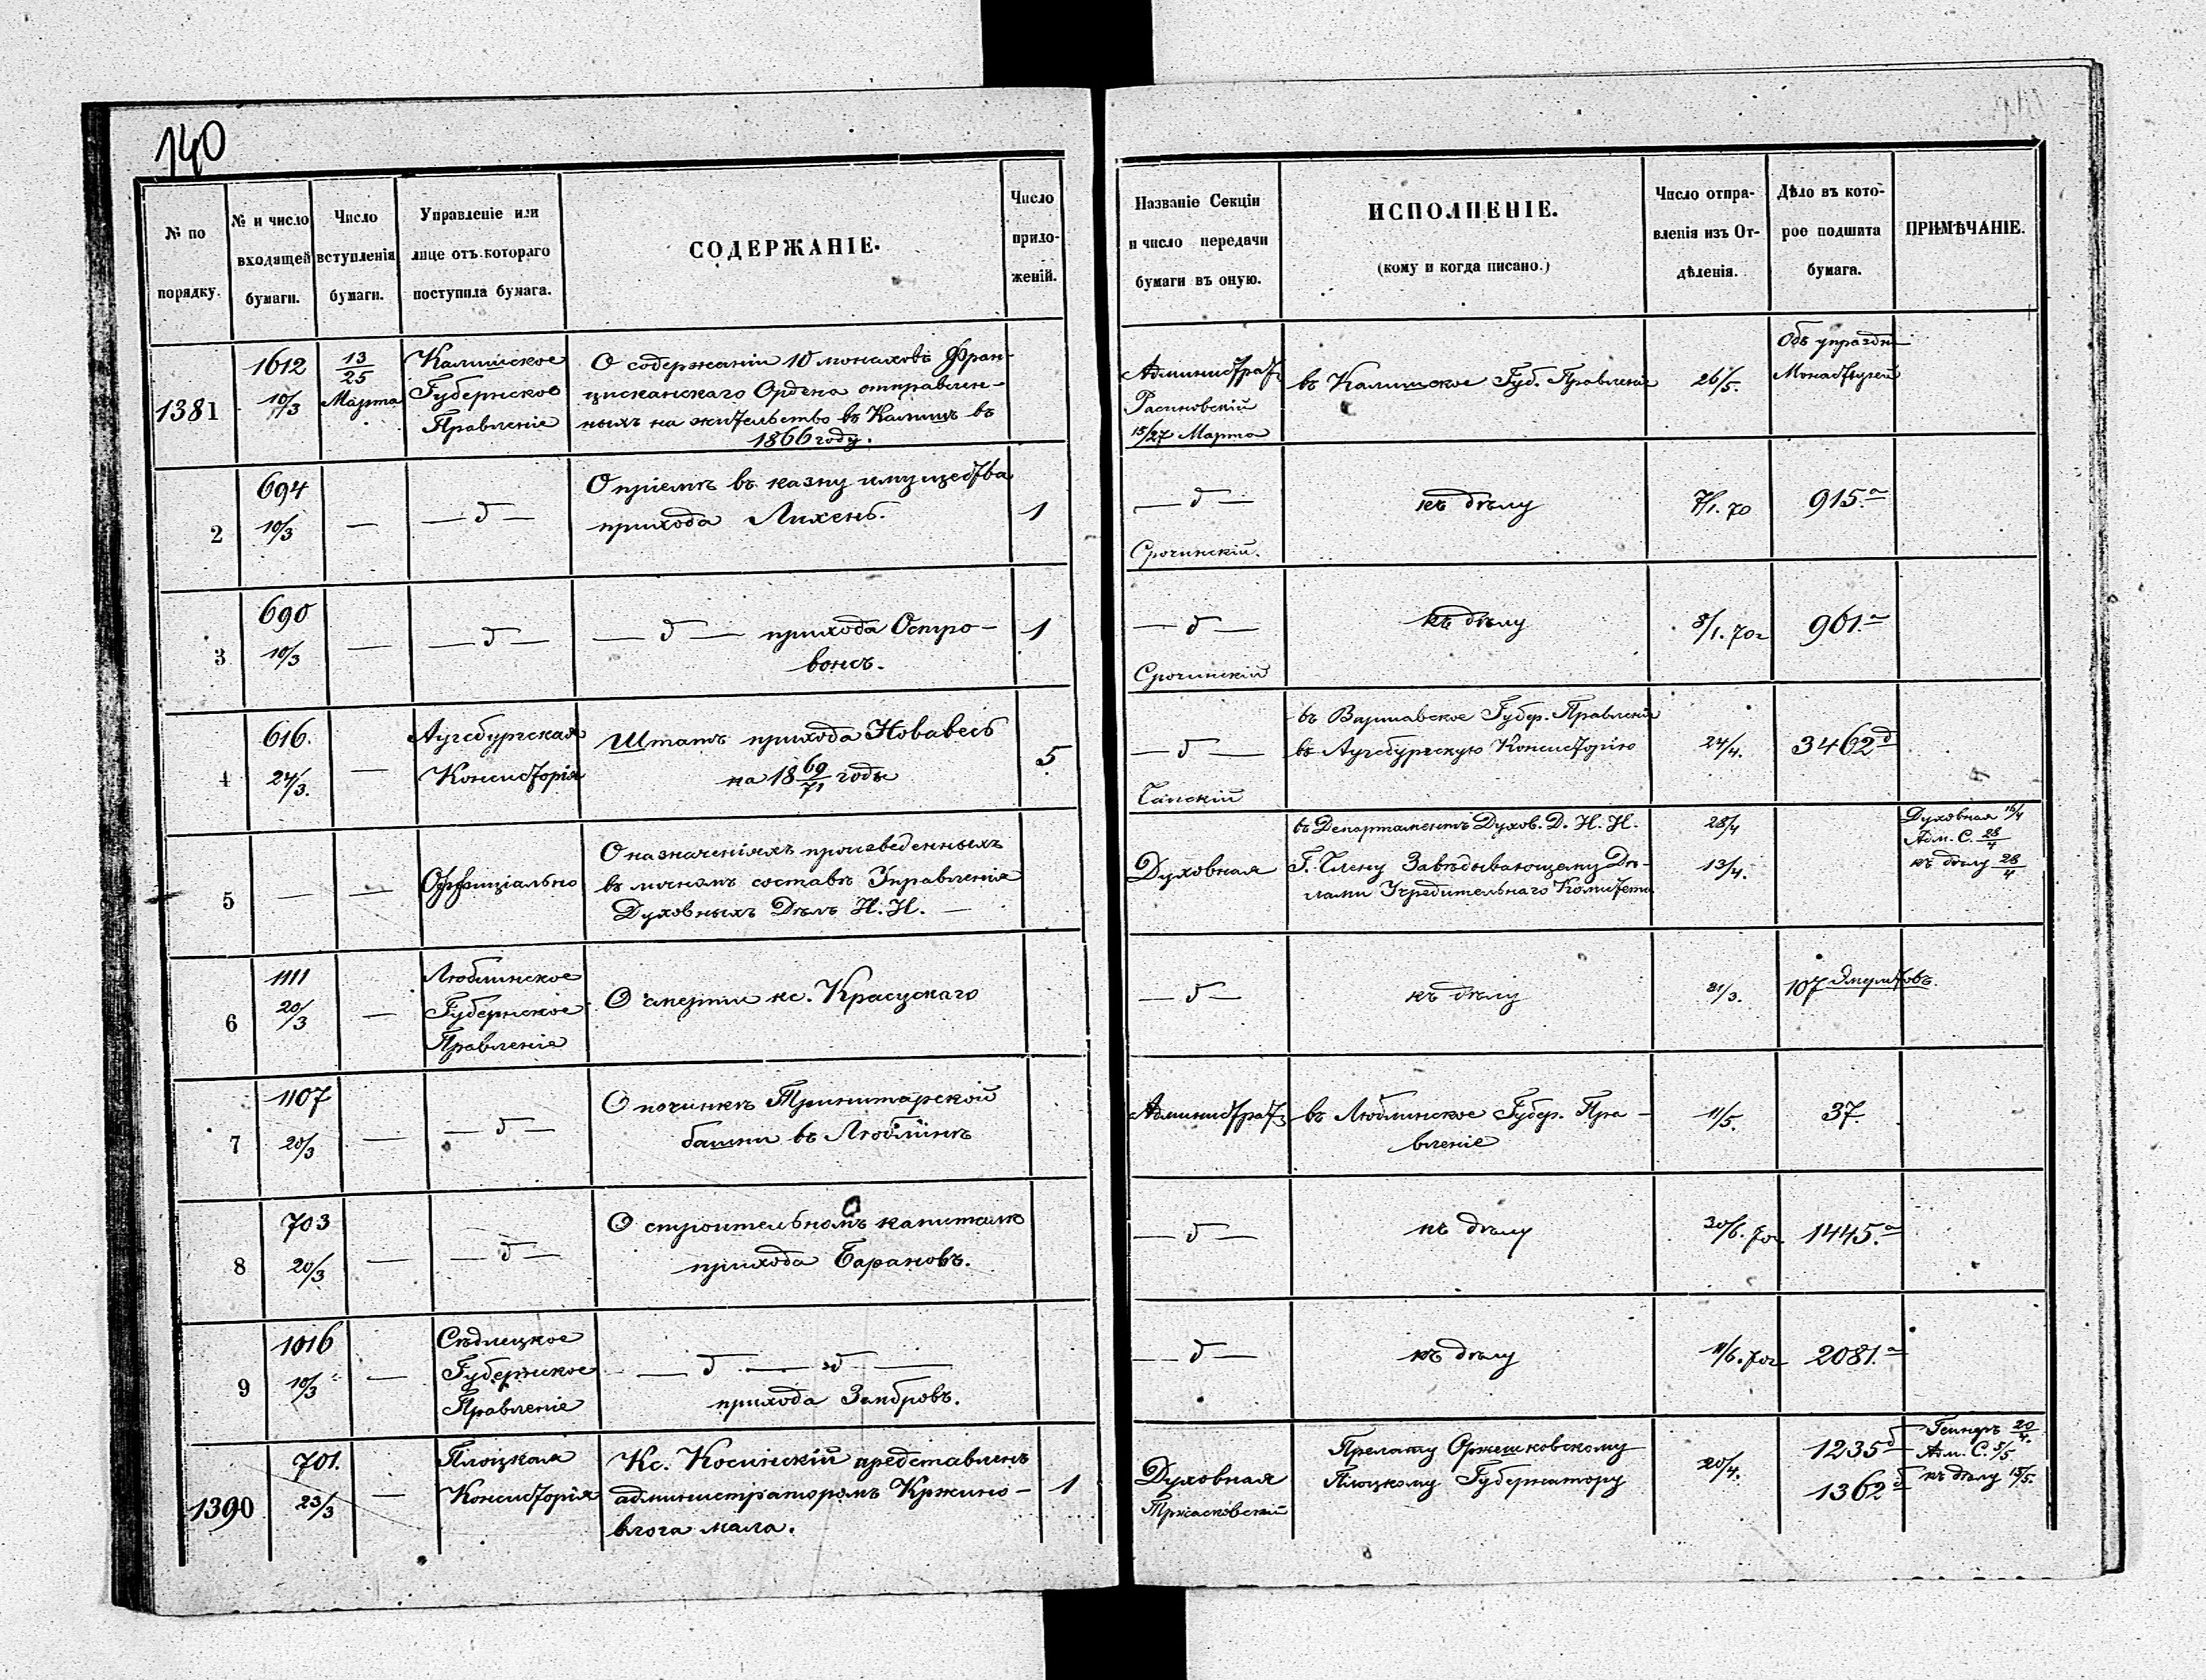 140
№ по порядку.
№ и число входящей бумаги.
Число вступленія бумаги.
Управленіе или лице отъ котораго поступила бумага.
СОДЕРЖАНІЕ.
Число приложеній.
Названіе Секціи и число передачи бумаги въ оную.
ИСПОЛНЕНІЕ.
(кому и когда писано.)
Число отправленія изъ Отдѣленія.
Дѣло въ которое подшита бумага.
ПРИМѢЧАНІЕ.
1381
1612
10/3
13/25
Марта
Калишское
Губернское
Правленіе
О содержаніи 10 монаховъ Фран-
цисканскаго Ордена отправлен-
ныхъ на жительство въ Калишъ въ
1866 году.
Администрат
15/27 Марта
въ Калишское Губ. Правленіе
26/5.
Объ упраздн
Монастырей
2
694
10/3
—
— д —
О пріемѣ въ казну имущества
прихода Лихень.
1
— д —
Срочинскій.
къ дѣлу
7/1. 70
915.а
3
690
10/3
—
— д —
— д — прихода Остро-
вонсъ.
1
— д —
Срочинскій
къ дѣлу
8/1. 70г
961.а
4
616.
24/3.
—
Аугсбургская
Консисторія
Штатъ прихода Новавесь
на 18 69/71 годы
5
— д —
въ Варшавское Губер. Правленіе
въ Аугсбургскую Консисторію
24/4.
3462д
5
—
—
Оффиціально
О назначеніяхъ произведенныхъ
въ личномъ составѣ Управленія
Духовныхъ Дѣлъ И. И. —
Духовная
въ Департаментъ Духов. Д. И. И.
Г. Члену Завѣдывающему Дѣ-
лами Учредительнаго Комитета
28/4
13/4.
Духовная 16/4
Адм. С. 28/4
къ дѣлу 28/4
6
1111
20/3
—
Люблинское
Губернское
Правленіе
О смерти кс. Красускаго
— д —
къ дѣлу
31/3.
107 Эмеритовъ.
7
1107
20/3
—
— д —
О починкѣ Тринитарской
башни въ Люблинѣ
Администрат
въ Люблинское Губер. Пра-
вленіе
11/5.
37.
8
703
20/3
—
— д —
О строительномъ капиталѣ
прихода Барановъ.
— д —
къ дѣлу
30/6. 70г
1445.а
9
1016
10/3
—
Сѣдлецкое
Губернское
Правленіе
— д — д —
прихода Замбровъ.
— д —
къ дѣлу
11/6. 70г
2081.а
1390
701.
23/3
—
Плоцкая
Консисторія
Кс. Косинскій представленъ
администраторомъ Кржино-
влога мала.
1
Духовная
Тржасковскій
Прелату Оржешковскому
Плоцкому Губернатору
20/4.
1235д
1362д
20/4.
Адм. С. 5/5
къ дѣлу 15/5.